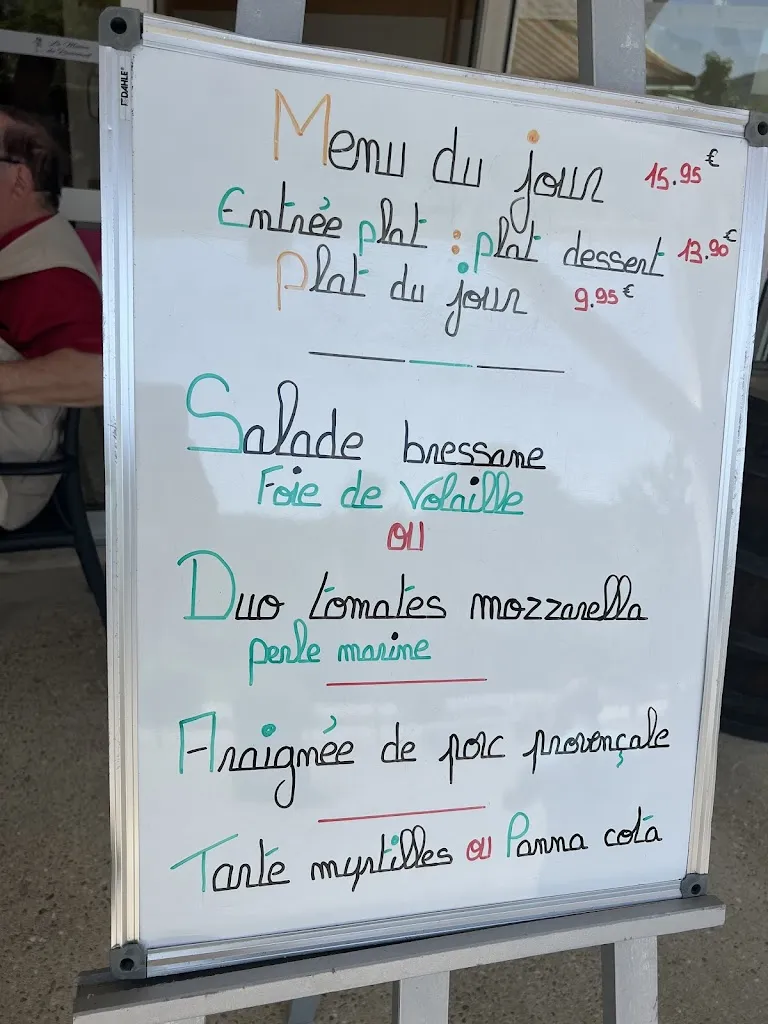 DAHLE
Menu du jour 15.95€
Entrée plat : plat dessert 13.90€
Plat du jour 9.95€
Salade bressane
Foie de Volaille
ou
Duo tomates mozzarella
perle marine
Araignée de porc provençale
Tarte myrtilles ou Panna cota